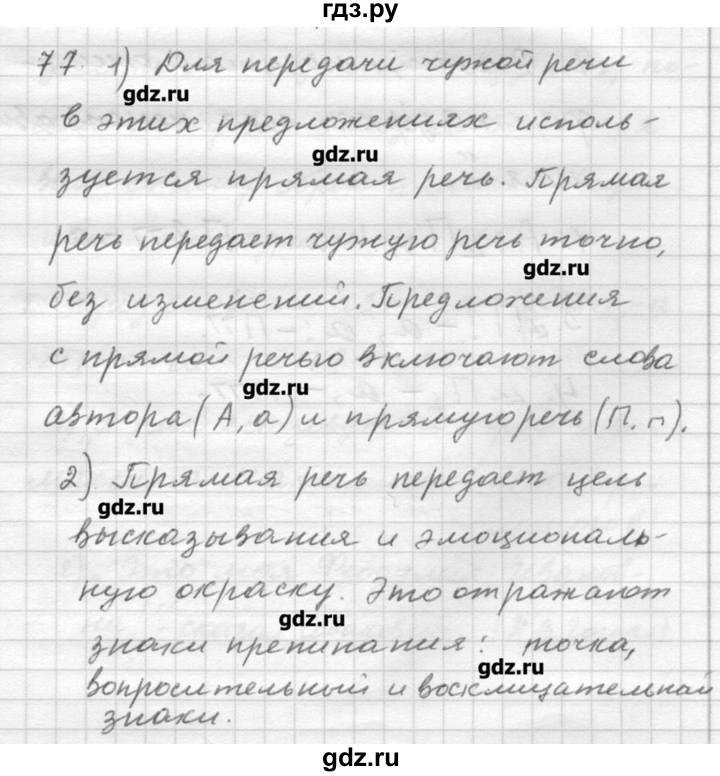 гдз.ру
77. 1) Для передачи чужой речи
gdz.ru
в этих предложениях исполь-
gdz.ru
зуется прямая речь. Прямая
речь передает чужую речь точно,
gdz.ru
без изменений. Предложения
с прямой речью включают слова
gdz.ru
автора (А, а) и прямую речь (П. п).
2) Прямая речь передает цель
gdz.ru
высказывания и эмоциональ-
ную окраску. Это отражают
gdz.ru
знаки препинания: точка,
gdz.ru
вопросительный и восклицательный
знаки.
gdz.ru